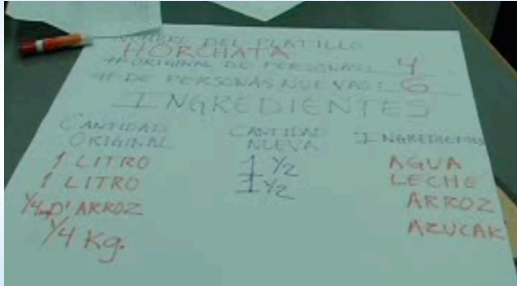 NOMBRE DEL PLATILLO
HORCHATA
# ORIGINAL DE PERSONAS: 4
# DE PERSONAS NUEVAS: 6
INGREDIENTES
CANTIDAD ORIGINAL CANTIDAD NUEVA INGREDIENTES
1 LITRO 1 1/2 AGUA
1 LITRO 1 1/2 LECHE
1/4 D' ARROZ ARROZ
1/4 Kg. AZUCAR